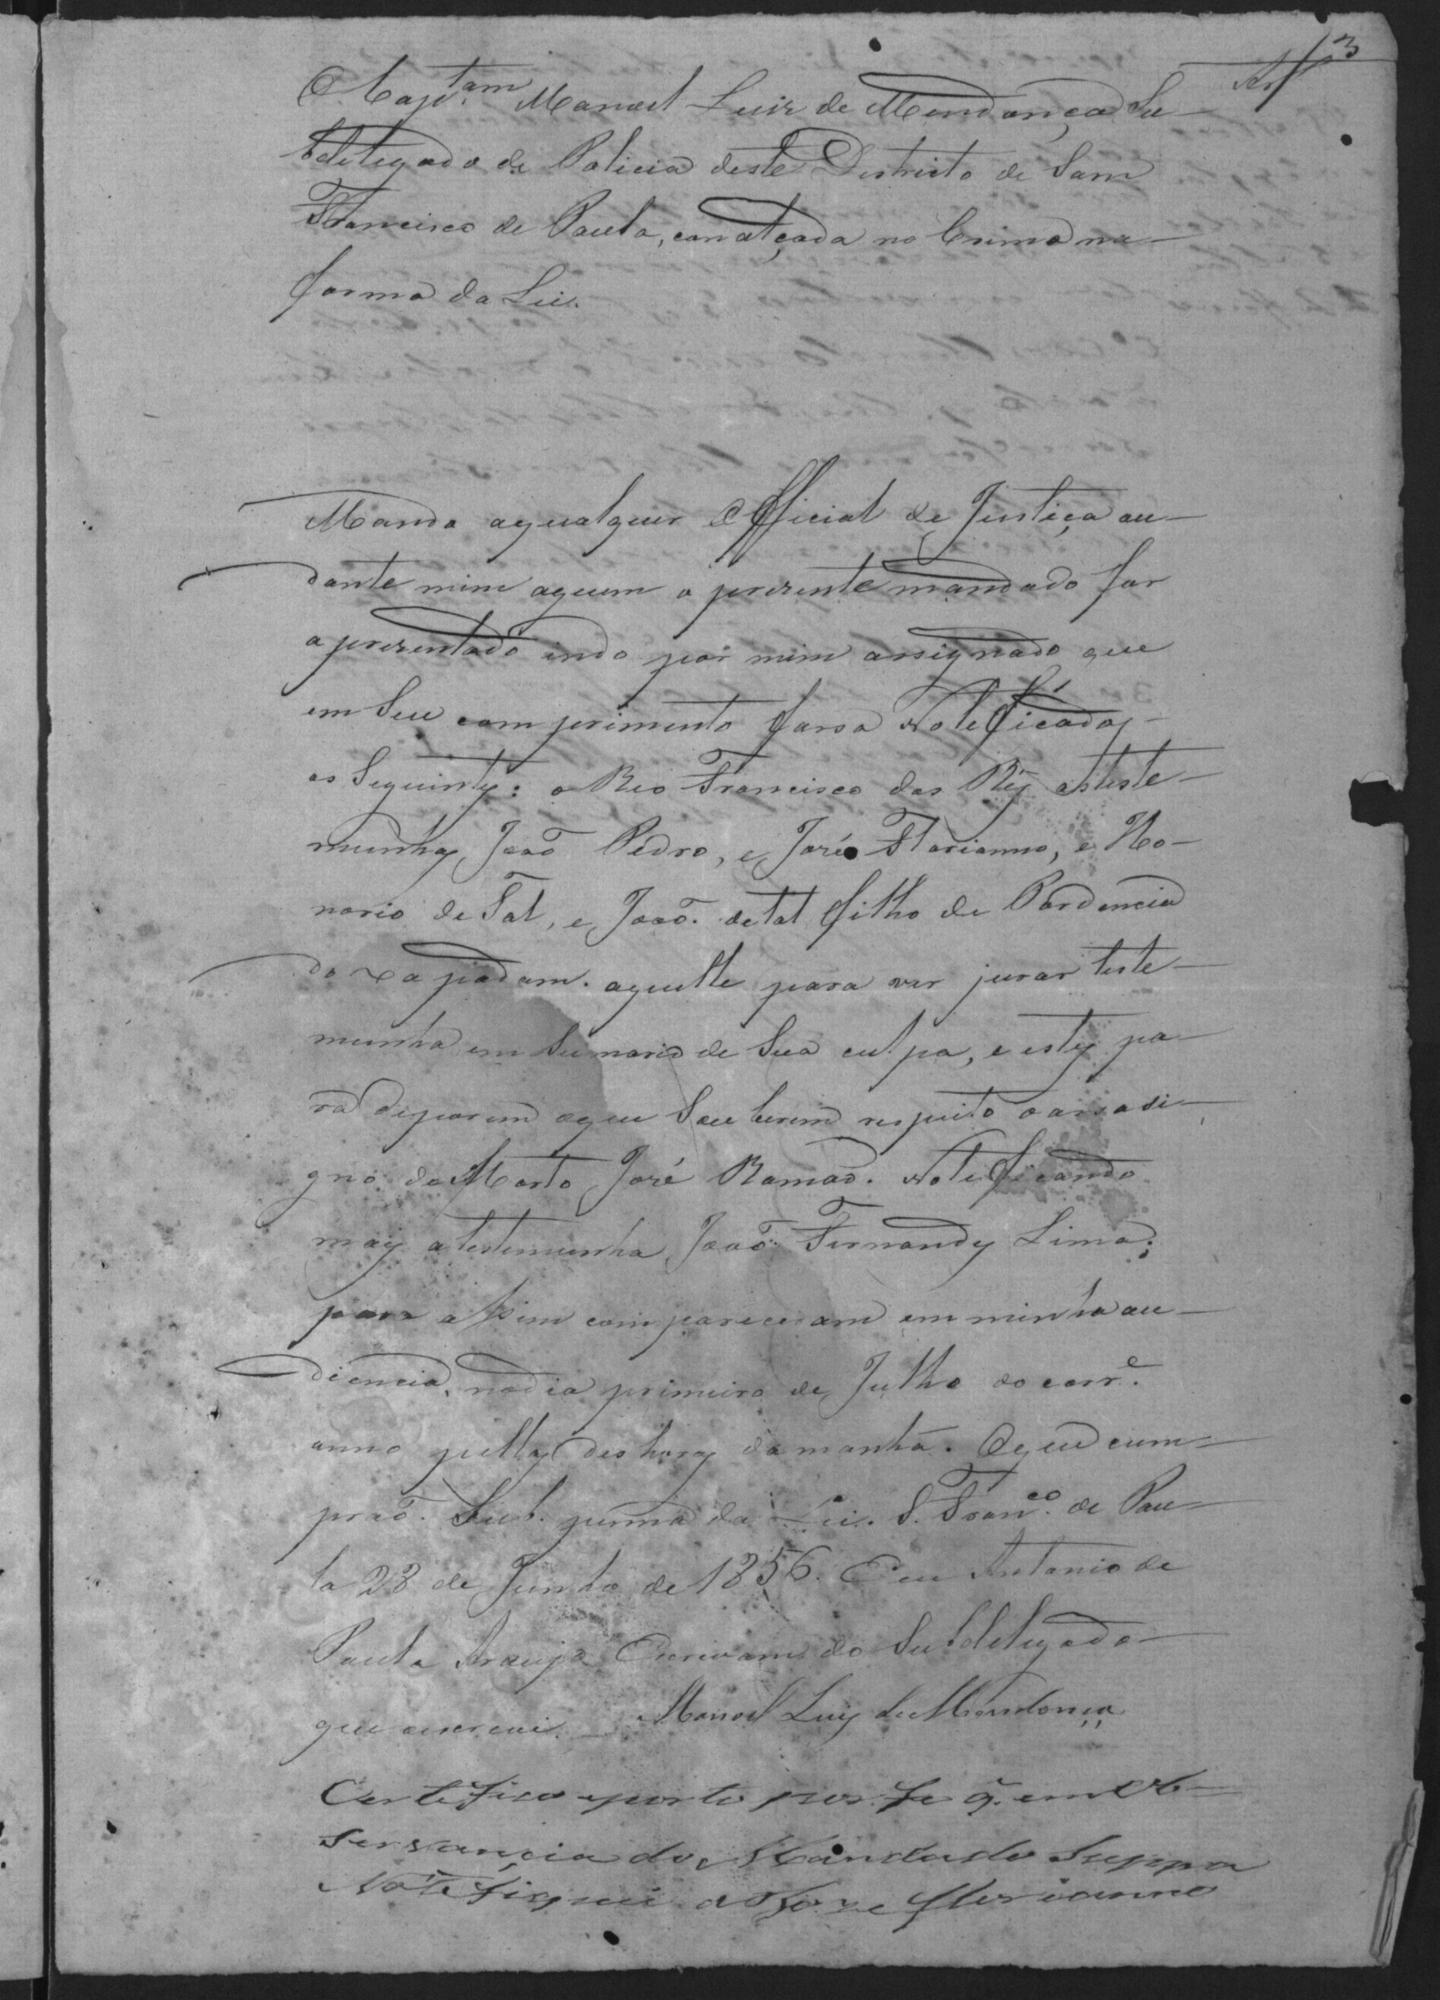 3
O Cap.tam Manoel Luiz de Mendonça Su-
bdelegado de Policia deste Districto de Sam
Francisco de Paula, com alçada no Crime na
forma da Lei.
Mando aqualquer Official de Justiça au-
dante mim aquem o prezente mandado for
aprezentado indo por mim assignado que
em Seu comprimento farsa Notificados
os Seguintes: o Reo Francisco dos Reis as teste-
munhas João Pedro, e José Florianno, e Ho-
norio de Tal, e João de tal filho de Pordencia
do Xapadam. aquelle para ver jurar teste-
munha em Sumario de Sua culpa, e estes pa-
ra deporem oque Souberem respeito o assasi-
gno do Morto José Ramad. Notificando
mais a testemunha João Fernandes Lima;
para assim comparecerem em minha au-
diencia, no dia primeiro de Julho do corr.e
anno pellas des horas da manhã. Oque cum-
prão. Sub. penna da Lei. S. Fran.co de Pau-
la 28 de Junho de 1856. Eu Antonio de
Paula Araujo Escrivam do Subdelegado
que escrevi. Manoel Luiz de Mendonça
Certefico e porto por fe q. em Ob-
servancia do Mandado Suppra
Notefiquei a Joze Florianno